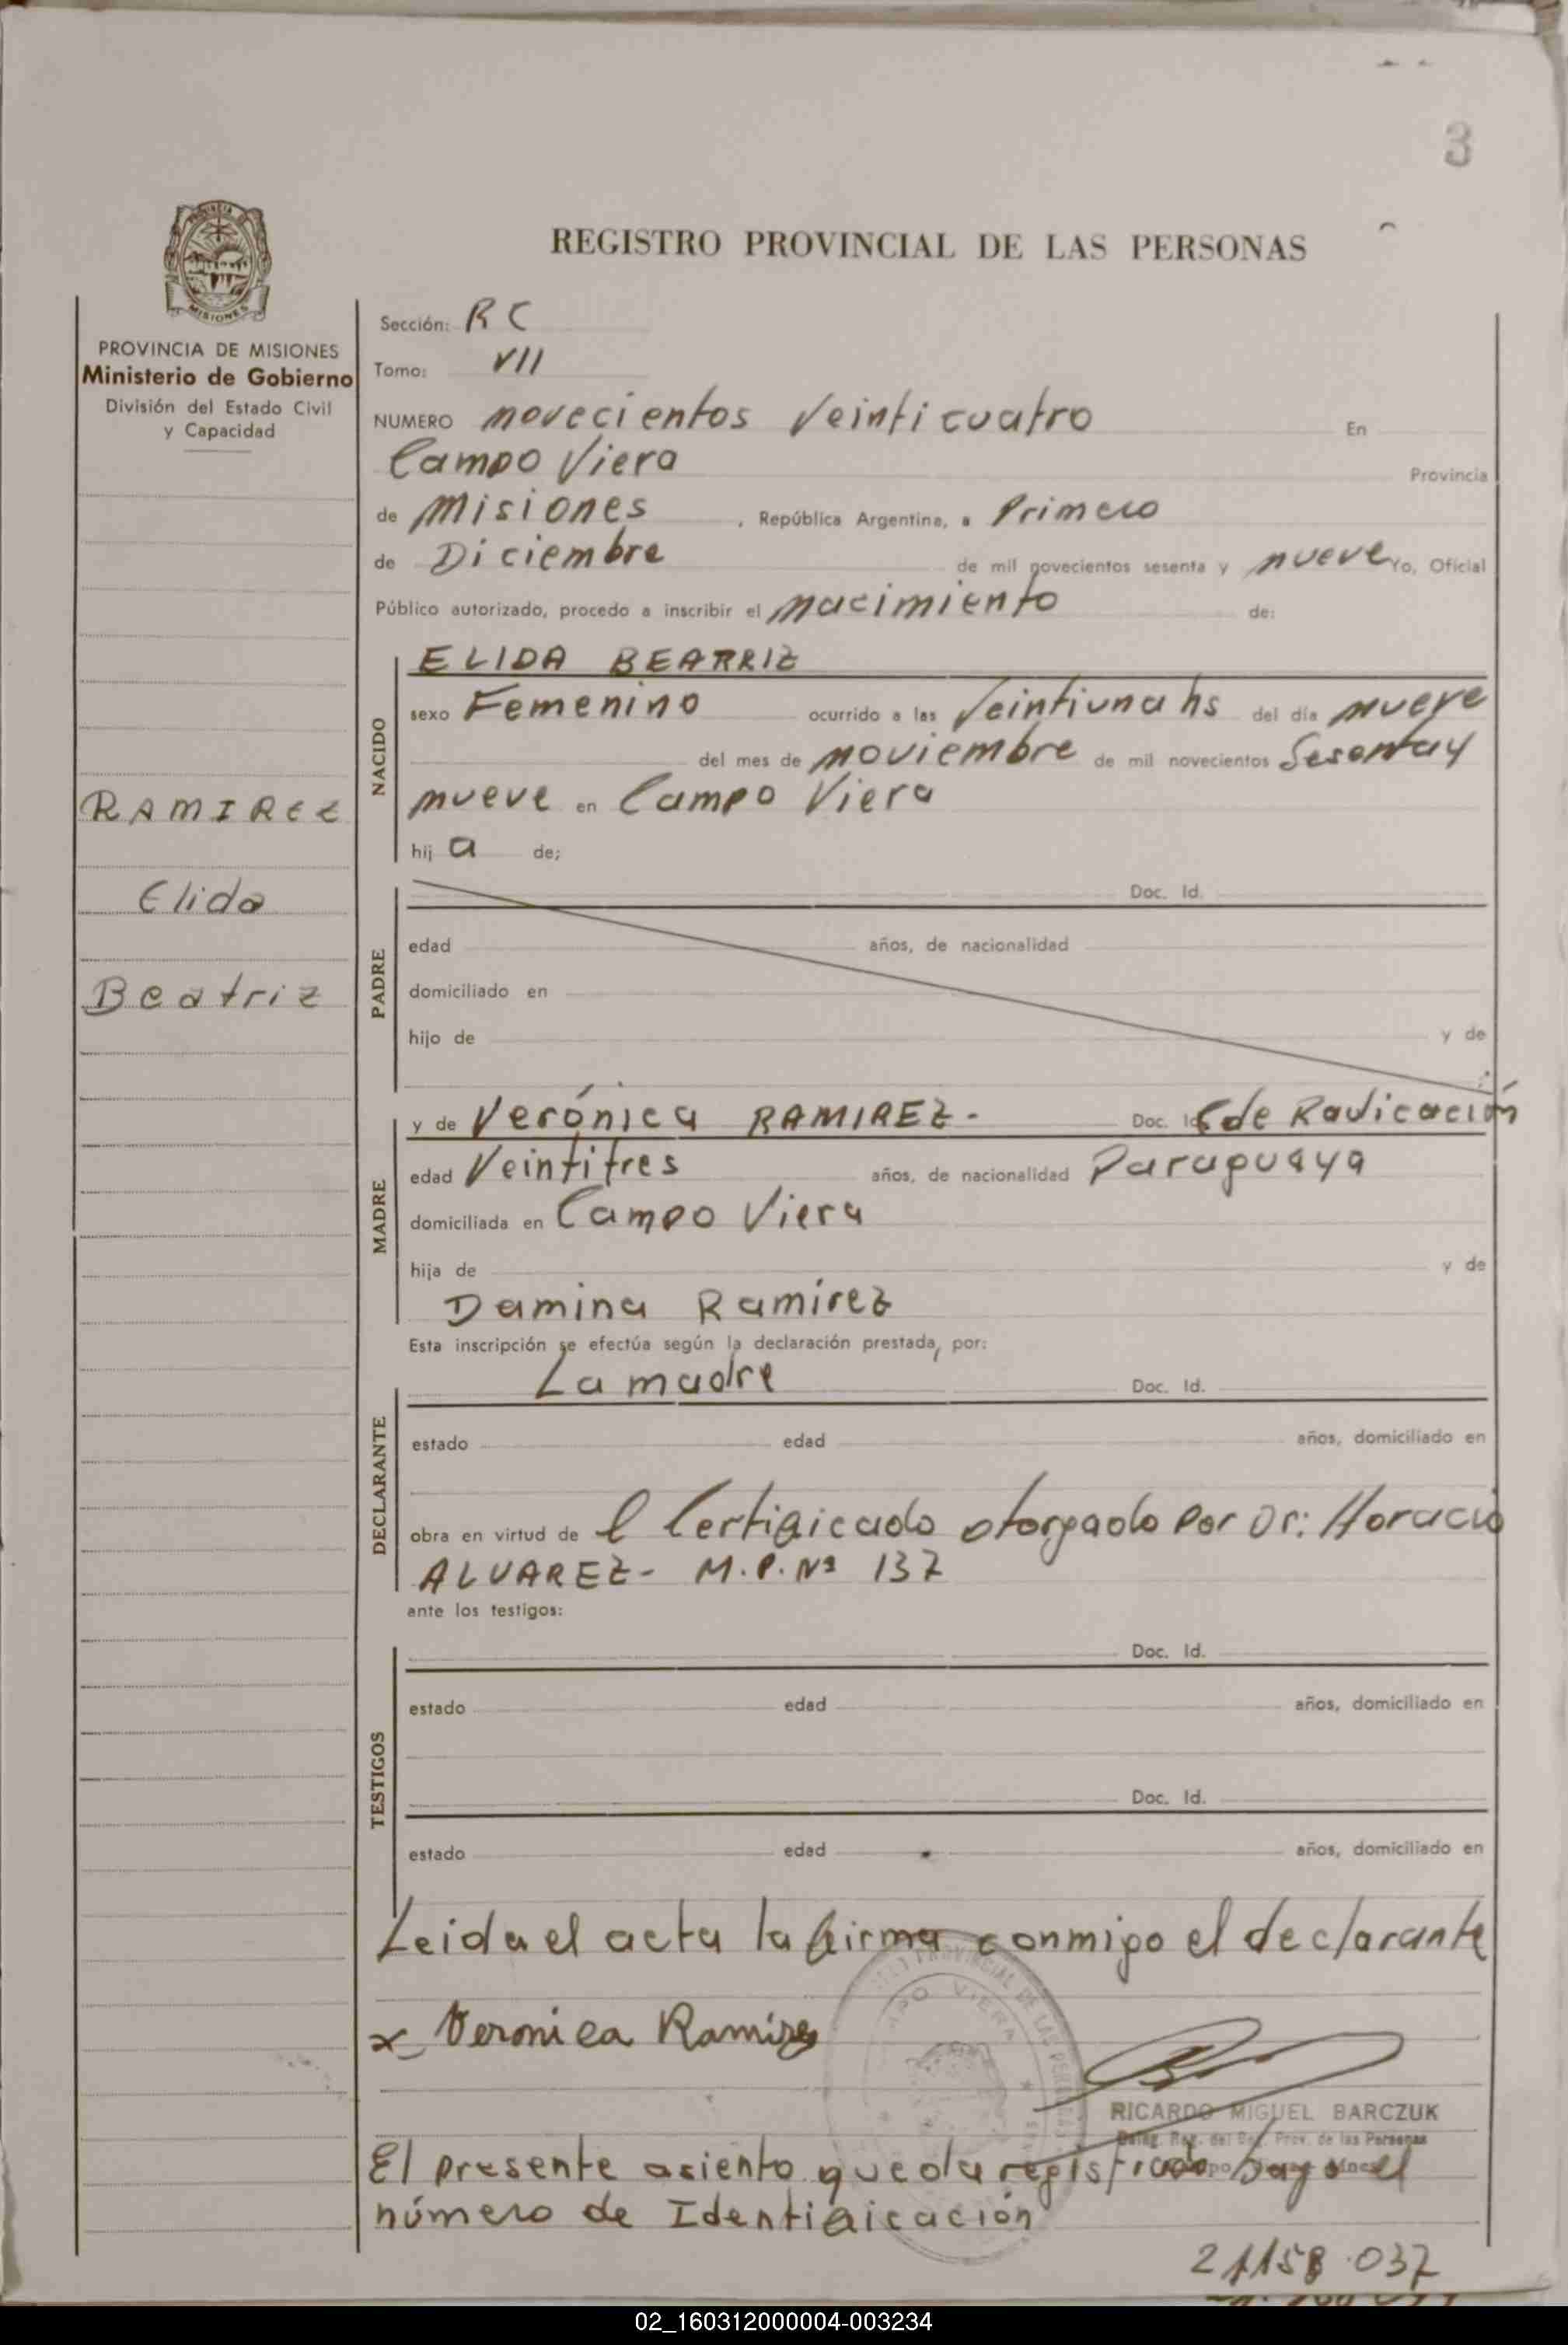 3
REGISTRO PROVINCIAL DE LAS PERSONAS
PROVINCIA DE MISIONES
Ministerio de Gobierno
División del Estado Civil
y Capacidad
RAMIREZ
Elida
Beatriz
Sección: R C
Tomo: VII
NUMERO novecientos Veinticuatro En
Campo Viera Provincia
de Misiones, República Argentina, a Primero
de Diciembre de mil novecientos sesenta y nueve Yo, Oficial
Público autorizado, procedo a inscribir el nacimiento de:
NACIDO
ELIDA BEATRIZ
sexo Femenino ocurrido a las Veintiuna hs del día nueve
del mes de noviembre de mil novecientos Sesenta y
nueve en Campo Viera
hij a de;
PADRE
Doc. Id.
edad años, de nacionalidad
domiciliado en
hijo de y de
MADRE
y de Verónica RAMIREZ- Doc. Id C de Radicación
edad Veintitres años, de nacionalidad Paraguaya
domiciliada en Campo Viera
hija de y de
Damina Ramirez
Esta inscripción se efectúa según la declaración prestada, por:
DECLARANTE
La madre Doc. Id.
estado edad años, domiciliado en
obra en virtud de l Certificado otorgado por Dr: Horacio
ALVAREZ- M.P. Nº 137
ante los testigos:
TESTIGOS
Doc. Id.
estado edad años, domiciliado en
Doc. Id.
estado edad años, domiciliado en
Leida el acta la firma conmigo el declarante
x Veronica Ramirez
RICARDO MIGUEL BARCZUK
Prov. de las Personas
El presente asiento queda registrado bajo el
número de Identificación
21158.037
02_160312000004-003234